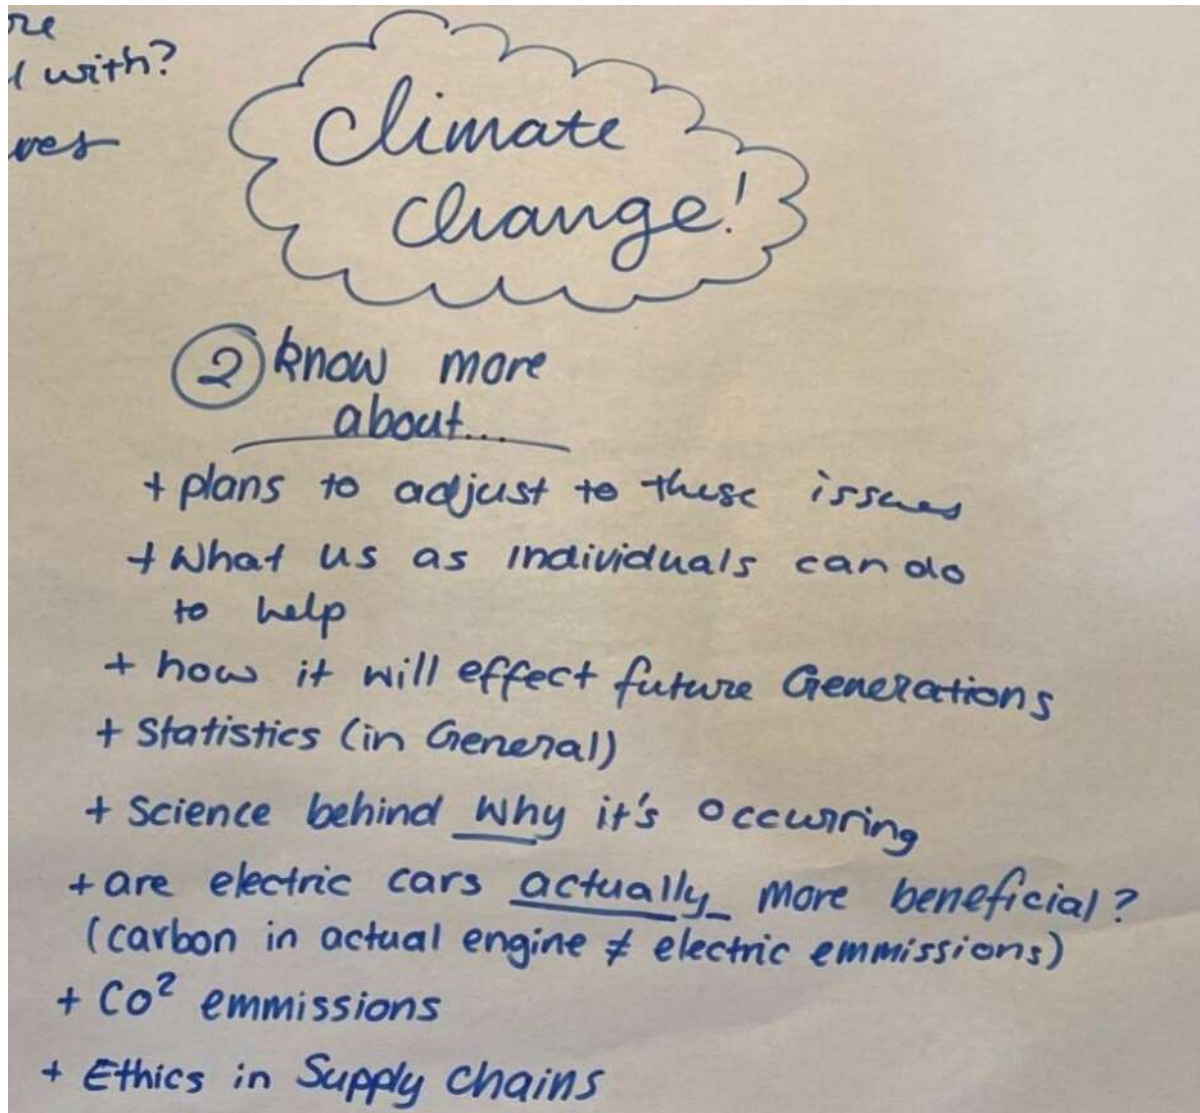 with?
Climate
change!
2 know more
about...
+ plans to adjust to these issues
+ What us as individuals can do
to help
+ how it will effect future Generations
+ Statistics (in General)
+ Science behind Why it's occurring
+ are electric cars actually more beneficial?
(carbon in actual engine ≠ electric emmissions)
+ CO² emmissions
+ Ethics in Supply chains